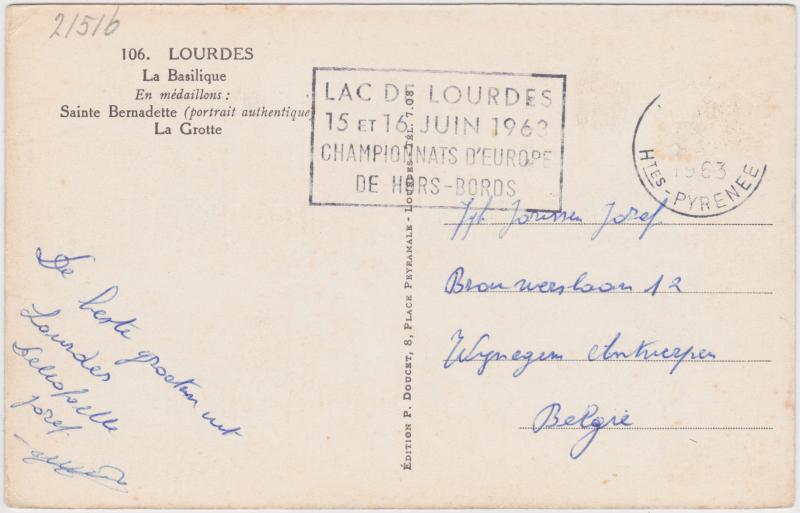 21516
106. LOURDES
La Basilique
En médaillons :
Sainte Bernadette (portrait authentique)
La Grotte
LAC DE LOURDES
15 ET 16 JUIN 1963
CHAMPIONNATS D'EUROPE
DE HORS-BORDS
1963
HTES-PYRENEE
ÉDITION P. DOUCET, 8, PLACE PEYRAMALE - LOURDES - TÉL. 7.08
Jorissen Jozef
Brouwerslaan 12
Wijnegem Antwerpen
België
De beste groeten uit
Lourdes
Jozef